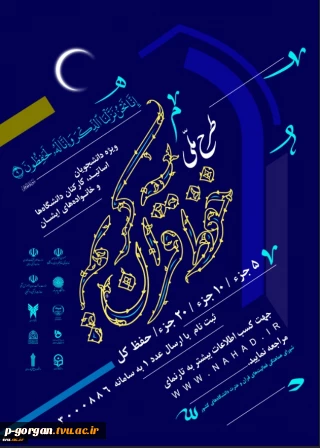 إِنَّا نَحْنُ نَزَّلْنَا الذِّكْرَ وَإِنَّا لَهُ لَحَافِظُونَ
طرح ملی
حفظ قرآن کریم
ویژه دانشجویان
اساتید، کارکنان دانشگاه‌ها
و خانواده‌های ایشان
۵ جزء / ۱۰ جزء / ۲۰ جزء / حفظ کل
ثبت نام با ارسال عدد ۱ به سامانه ۳۰۰۰۸۸۶
جهت کسب اطلاعات بیشتر به تارنمای
WWW.NAHAD.IR
مراجعه نمایید
p-gorgan.tvu.ac.ir